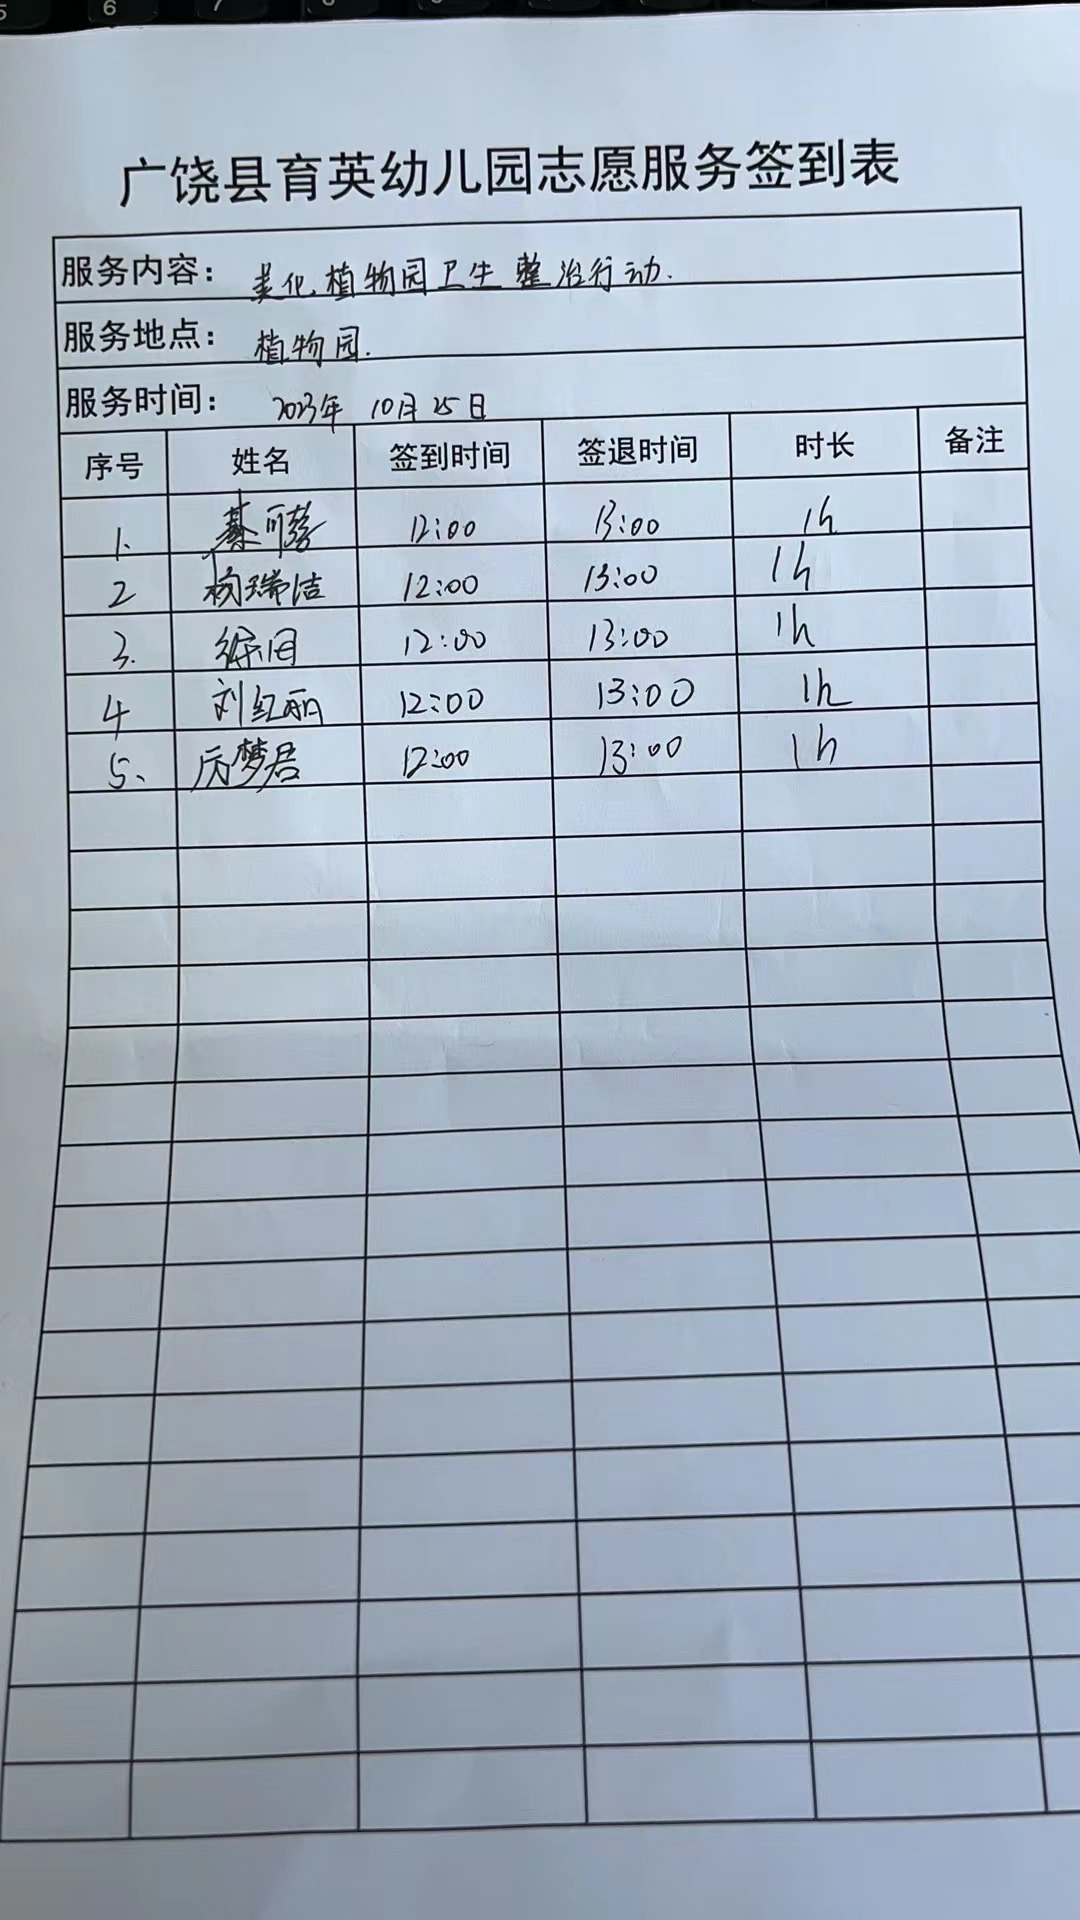 广饶县育英幼儿园志愿服务签到表
服务内容： 美化植物园卫生整治行动.
服务地点： 植物园.
服务时间： 2023年 10月25日
序号 姓名 签到时间 签退时间 时长 备注
1. 綦可 12:00 13:00 1h
2 杨瑞洁 12:00 13:00 1h
3. 徐 12:00 13:00 1h
4 刘红丽 12:00 13:00 1h
5、 厉梦君 12:00 13:00 1h